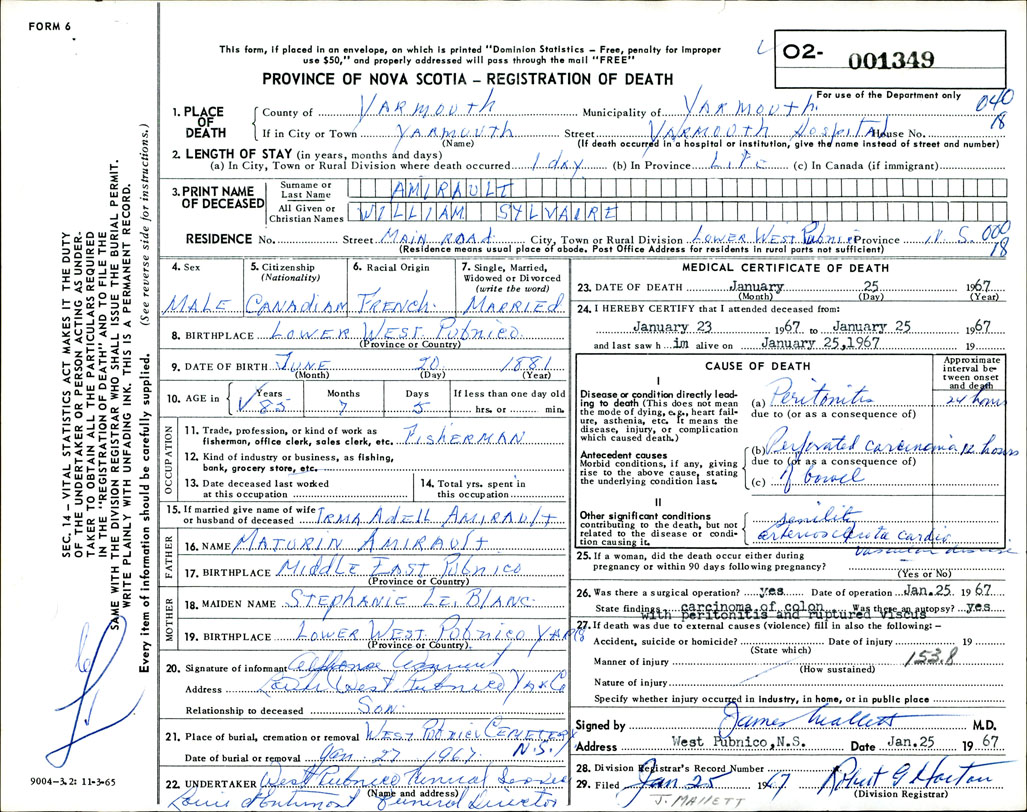 FORM 6
This form, if placed in an envelope, on which is printed "Dominion Statistics – Free, penalty for improper
use $50," and properly addressed will pass through the mail "FREE"
PROVINCE OF NOVA SCOTIA – REGISTRATION OF DEATH
02- 001349
For use of the Department only
040
18
1. PLACE OF DEATH
County of YARMOUTH Municipality of YARMOUTH
If in City or Town YARMOUTH Street YARMOUTH HOSPITAL House No.
(Name) (If death occurred in a hospital or institution, give the name instead of street and number)
2. LENGTH OF STAY (in years, months and days)
(a) In City, Town or Rural Division where death occurred 1 day (b) In Province LIFE (c) In Canada (if immigrant)
3. PRINT NAME OF DECEASED
Surname or Last Name AMIRAULT
All Given or Christian Names WILLIAM SYLVAIRE
RESIDENCE No. Street MAIN ROAD City, Town or Rural Division LOWER WEST PUBNICO Province N.S. 000
18
(Residence means usual place of abode. Post Office Address for residents in rural parts not sufficient)
4. Sex MALE
5. Citizenship (Nationality) CANADIAN
6. Racial Origin FRENCH
7. Single, Married, Widowed or Divorced (write the word) MARRIED
8. BIRTHPLACE LOWER WEST PUBNICO
(Province or Country)
9. DATE OF BIRTH JUNE 20 1881
(Month) (Day) (Year)
10. AGE in Years 85 Months 7 Days 5 If less than one day old hrs. or min.
OCCUPATION
11. Trade, profession, or kind of work as fisherman, office clerk, sales clerk, etc. FISHERMAN
12. Kind of industry or business, as fishing, bank, grocery store, etc.
13. Date deceased last worked at this occupation
14. Total yrs. spent in this occupation
15. If married give name of wife or husband of deceased IRMA ADELL AMIRAULT
FATHER
16. NAME MATURIN AMIRAULT
17. BIRTHPLACE MIDDLE EAST PUBNICO
(Province or Country)
MOTHER
18. MAIDEN NAME STEPHANIE LE BLANC
19. BIRTHPLACE LOWER WEST PUBNICO
(Province or Country)
20. Signature of informant
Address West Pubnico Yar Co
Relationship to deceased SON
21. Place of burial, cremation or removal WEST PUBNICO CEMETERY
N.S.
Date of burial or removal Jan. 27 1967
22. UNDERTAKER West Pubnico Funeral Service
(Name and address)
Funeral Director
MEDICAL CERTIFICATE OF DEATH
23. DATE OF DEATH January 25 1967
(Month) (Day) (Year)
24. I HEREBY CERTIFY that I attended deceased from:
January 23 1967 to January 25 1967
and last saw h im alive on January 25,1967 19
CAUSE OF DEATH
Approximate interval between onset and death
I
Disease or condition directly leading to death (This does not mean the mode of dying, e.g., heart failure, asthenia, etc. It means the disease, injury, or complication which caused death.)
(a) Peritonitis 24 hours
due to (or as a consequence of)
Antecedent causes
Morbid conditions, if any, giving rise to the above cause, stating the underlying condition last.
(b) Perforated carcinoma 12 hours
due to (or as a consequence of)
(c) of bowel
II
Other significant conditions
contributing to the death, but not related to the disease or condition causing it.
senility
arteriosclerotic cardio
vascular disease
25. If a woman, did the death occur either during
pregnancy or within 90 days following pregnancy?
(Yes or No)
26. Was there a surgical operation? yes Date of operation Jan.25 1967
State findings carcinoma of colon Was there an autopsy? yes
with peritonitis and ruptured viscus
27. If death was due to external causes (violence) fill in also the following: –
Accident, suicide or homicide? Date of injury 19
(State which)
Manner of injury 153.8
(How sustained)
Nature of injury
Specify whether injury occurred in industry, in home, or in public place
Signed by James Mallett M.D.
Address West Pubnico, N.S. Date Jan.25 1967
28. Division Registrar's Record Number
29. Filed Jan 25 1967 Robert G Horton
(Division Registrar)
J. MALLETT
SEC. 14 – VITAL STATISTICS ACT MAKES IT THE DUTY
OF THE UNDERTAKER OR PERSON ACTING AS UNDER-
TAKER TO OBTAIN ALL THE PARTICULARS REQUIRED
IN THE "REGISTRATION OF DEATH" AND TO FILE THE
SAME WITH THE DIVISION REGISTRAR WHO SHALL ISSUE THE BURIAL PERMIT.
WRITE PLAINLY WITH UNFADING INK. THIS IS A PERMANENT RECORD.
Every item of information should be carefully supplied. (See reverse side for instructions.)
9004-3.2: 11-3-65